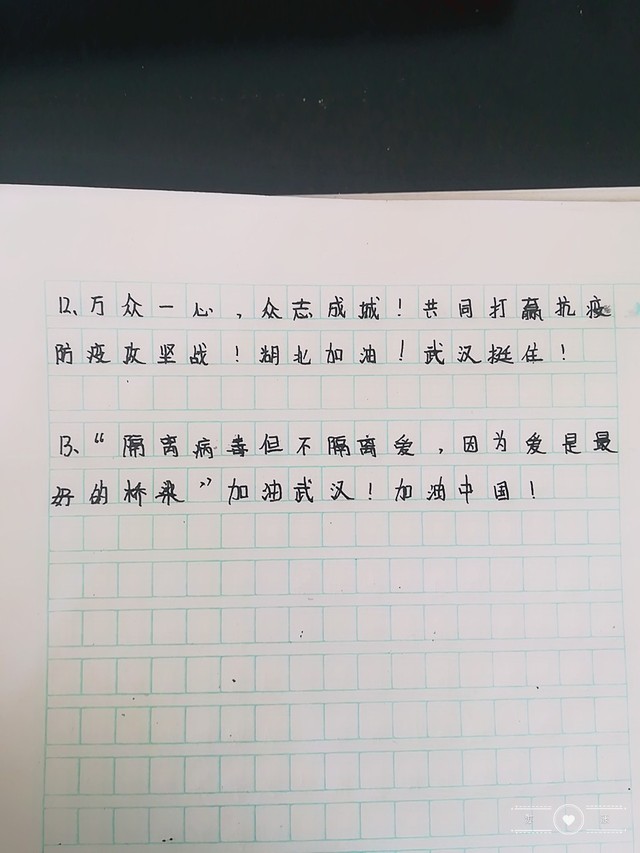 12、万众一心，众志成城！共同打赢抗疫
防疫攻坚战！湖北加油！武汉挺住！
13、“隔离病毒但不隔离爱，因为爱是最
好的桥梁”加油武汉！加油中国！